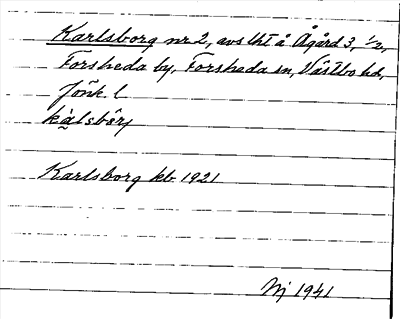 Karlsborg nr 2, avs lht å Ågård 3, ½,
Forsheda by, Forsheda sn, Västbo hd,
Jönk. l
kàlsbȯrj
Karlsborg kb 1921
Nj 1941